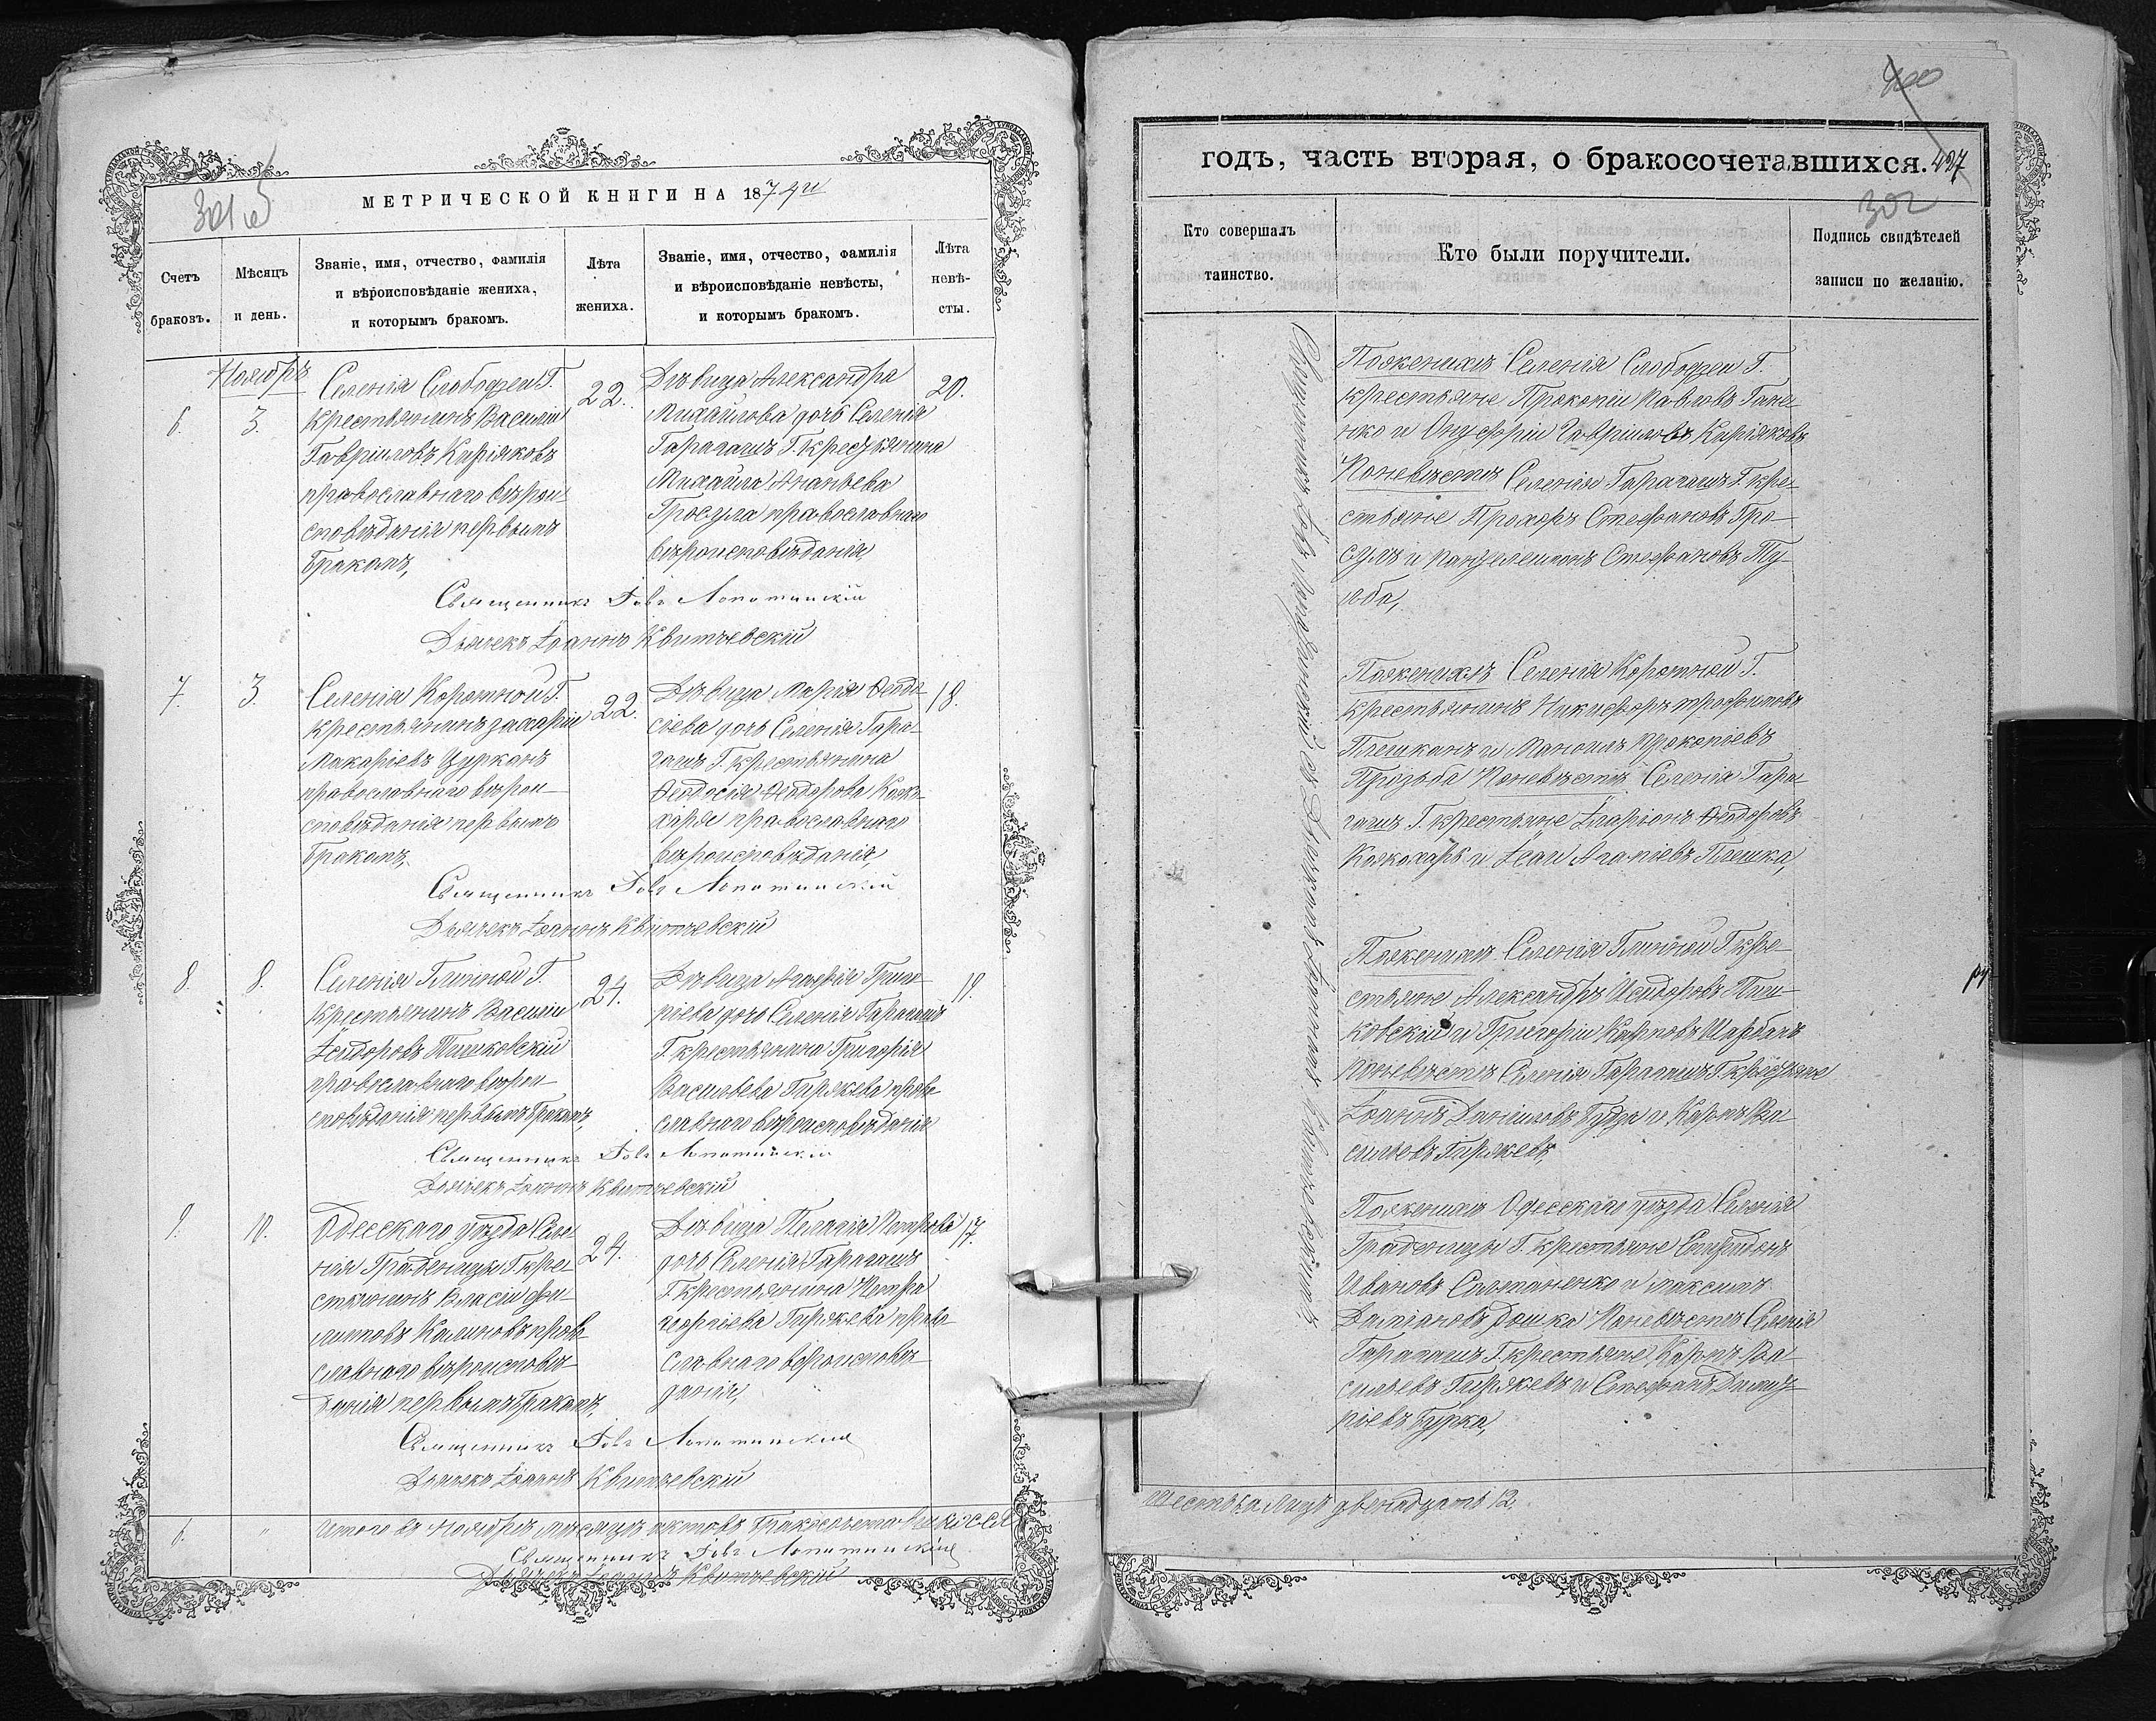 МЕТРИЧЕСКОЙ КНИГИ НА 1874й
301 об
Счетъ браковъ.
Мѣсяцъ и день.
Званіе, имя, отчество, фамилія и вѣроисповѣданіе жениха, и которымъ бракомъ.
Лѣта жениха.
Званіе, имя, отчество, фамилія и вѣроисповѣданіе невѣсты, и которымъ бракомъ.
Лѣта невѣ-сты.
Ноябрь
6.
3.
Селенія Слободзеи Г.
Крестьянинъ Василій
Гавріиловъ Киріяковъ
православнаго вѣрои-
сповѣданія первымъ
бракомъ,
22.
Дѣвица Александра
Михайлова дочь Селенія
Гарагашъ Г. крестьянина
Михаила Ананьева
Гросула православнаго
вѣроисповѣданія,
20.
Священникъ Іовъ Лопатинскій
Дьячекъ Іоаннъ Квитчевскій
7.
3.
Селенія Коротной Г.
Крестьянинъ Захарій
Макаріевъ Цурканъ
православнаго вѣрои-
сповѣданія первымъ
бракомъ,
22.
Дѣвица Марія Ѳеодо-
сіева дочь Селенія Гара-
гашъ Г. крестьянина
Ѳеодосія Ѳеодорова Коже-
харя православнаго
вѣроисповѣданія,
18.
Священникъ Іовъ Лопатинскій
Дьячекъ Іоаннъ Квитчевскій
8.
8.
Селенія Глинной Г.
Крестьянинъ Василій
Ісидоровъ Пишковскій
православнаго вѣрои-
сповѣданія первымъ бракомъ,
24.
Дѣвица Агафія Григо-
ріева дочь Селенія Гарагашъ
Г. крестьянина Григорія
Васильева Гиржева право
славнаго вѣроисповѣданія
19.
Священникъ Іовъ Лопатинскій
Дьячекъ Іоаннъ Квитчевскій
9.
10.
Одесскаго уѣзда Селе-
нія Граденицы Г. кре-
стьянинъ Власій Фи-
липовъ Калиновъ право
славнаго вѣроисповѣ-
данія первымъ бракомъ,
24.
Дѣвица Пелагія Петрова
дочь Селенія Гарагашъ
Г. крестьянина Петра
Георгіева Гиржева право
славнаго вѣроисповѣ-
данія,
17.
Священникъ Іовъ Лопатинскій
Дьячекъ Іоаннъ Квитчевскій
6.
"
Итого въ Ноябрѣ мѣсяцѣ актовъ бракосочетавшихся
Священникъ Іовъ Лопатинскій
Дьячекъ Іоаннъ Квитчевскій
400
годъ, часть вторая, о бракосочетавшихся.
427
302
Кто совершалъ таинство.
Кто были поручители.
Подпись свидѣтелей записи по желанію.
Священникъ Іовъ Лопатинскій съ Дьячкомъ Іоанномъ Квитчевскимъ
По женихѣ Селенія Слободзеи Г.
крестьяне Прокопій Павловъ Гане-
нко и Онуфрій Гавріиловъ Киріяковъ
По невѣстѣ Селенія Гарагашъ Г. кре-
стьяне Прохоръ Стефановъ Гро-
сулъ и Пантелеимонъ Стефановъ
По женихѣ Селенія Коротной Г.
крестьянинъ Никифоръ Трофимовъ
Плешканъ и Мануилъ Прокопіевъ
По невѣстѣ Селенія Гара
гашъ Г. крестьяне Иларіонъ Ѳеодоровъ
Кожохарь и Іоан Агапіевъ Плешка,
По женихѣ Селенія Глинной Г. кре-
стьяне Александръ Исидоровъ Пиш-
ковскій и Григорій Карповъ Шарбанъ
По невѣстѣ Селенія Гарагашъ Г. крестьяне
Іоаннъ Даніиловъ Будза и Карпъ Ва
сильевъ Гиржевъ,
По женихѣ Одесскаго уѣзда Селенія
Граденицы Г. крестьяне Спиридонъ
Ивановъ Салтаненко и Максимъ
Даміановъ Дошка По невѣстѣ Селенія
Гарагашъ Г. крестьяне Карпъ Ва
сильевъ Гиржевъ и Стефанъ Димит
ріевъ Бурка,
Шесть а Лицъ двенадцать 12.